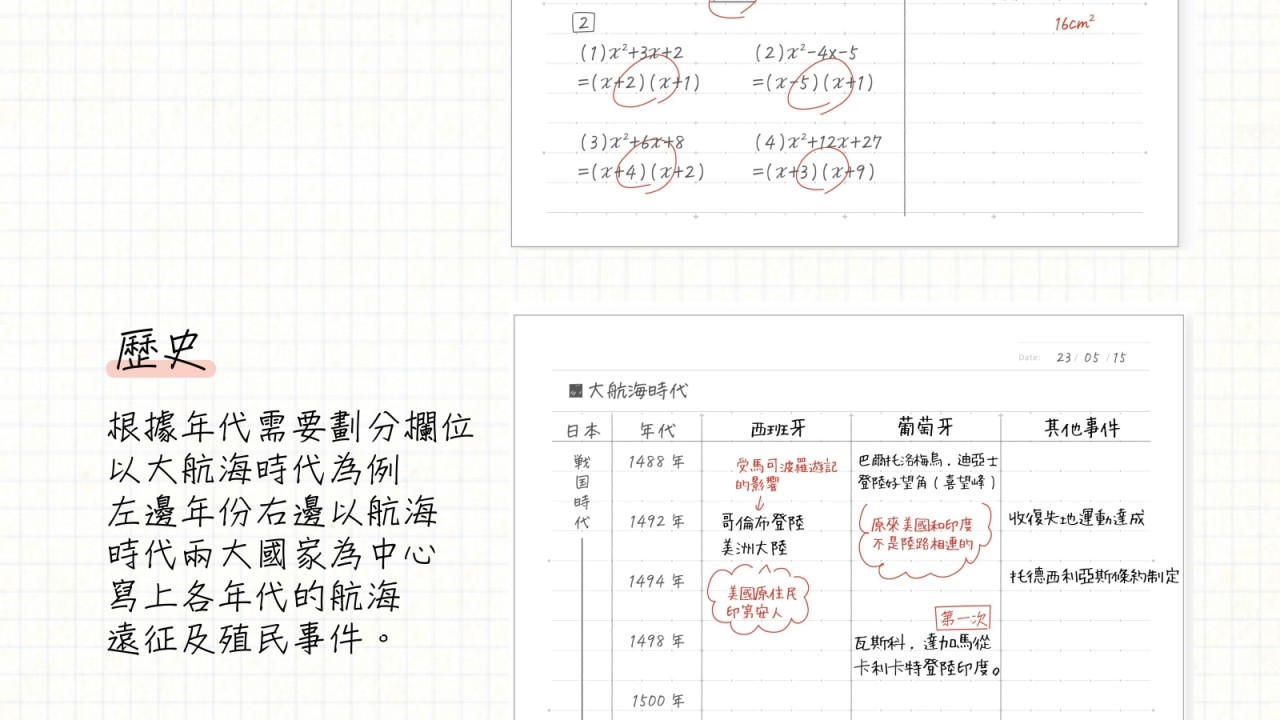 16cm²
2
(1)x²+3x+2
(2)x²-4x-5
=(x+2)(x+1)
=(x-5)(x+1)
(3)x²+6x+8
(4)x²+12x+27
=(x+4)(x+2)
=(x+3)(x+9)
歷史
根據年代需要劃分欄位
以大航海時代為例
左邊年份右邊以航海
時代兩大國家為中心
寫上各年代的航海
遠征及殖民事件。
Date: 23/ 05 /15
大航海時代
日本 年代 西班牙 葡萄牙 其他事件
戦国時代
1488 年
受馬可波羅遊記
的影響
↓
巴爾托洛梅烏．迪亞士
登陸好望角(喜望峰)
1492 年
哥倫布登陸
美洲大陸
原來美國和印度
不是陸路相連的
收復失地運動達成
1494 年
美國原住民
印第安人
托德西利亞斯條約制定
1498 年
第一次
瓦斯科．達加馬從
卡利卡特登陸印度。
1500 年